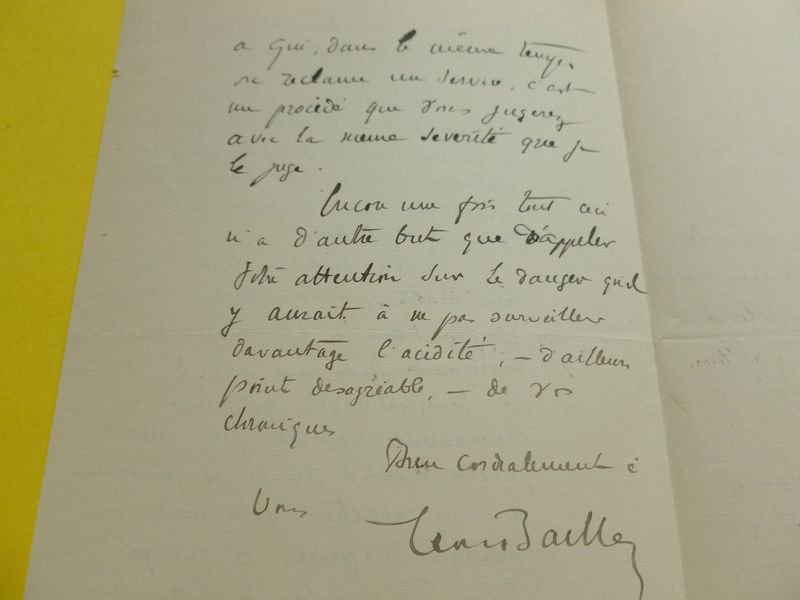 a qui, dans le même temps,
on réclame un service, c'est
un procédé que vous jugerez
avec la meme severité que je
le juge.
Encore une fois tout ceci
n'a d'autre but que d'appeler
votre attention sur le danger qu'il
y aurait à ne pas surveiller
davantage l'acidité, – d'ailleurs
point desagréable, – de vos
chroniques
Bien cordialement à
Vous